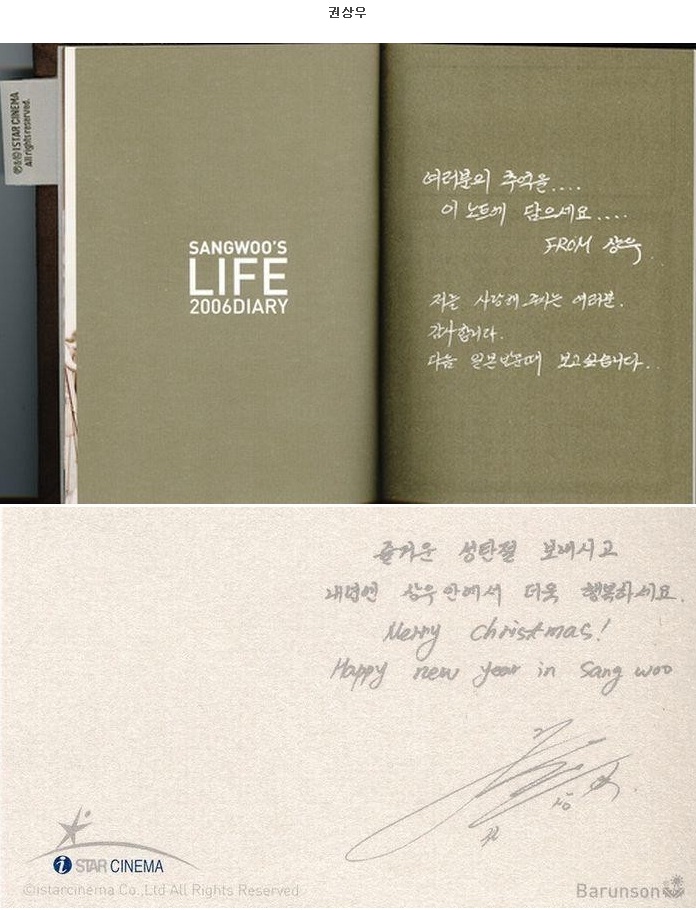 권상우
ⓟ&ⓒ ISTAR CINEMA
All rights reserved.
SANGWOO'S
LIFE
2006DIARY
여러분의 추억을....
이 노트에 담으세요....
FROM 상우.
저를 사랑해 주시는 여러분.
감사합니다.
다음 일본방문때 보고싶습니다..
즐거운 성탄절 보내시고
내년엔 상우안에서 더욱 행복하세요.
Merry christmas!
Happy new year in Sang woo
i STAR CINEMA
©istarcinema Co.,Ltd All Rights Reserved
Barunson